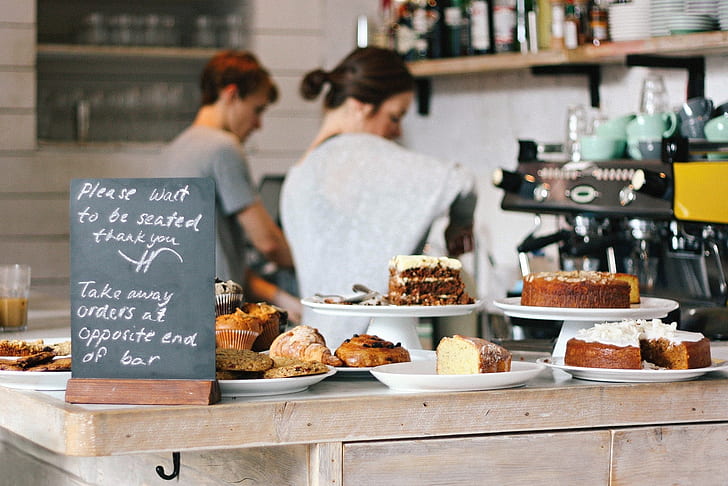 Please wait
to be seated
thank you
Take away
orders at
opposite end
of bar